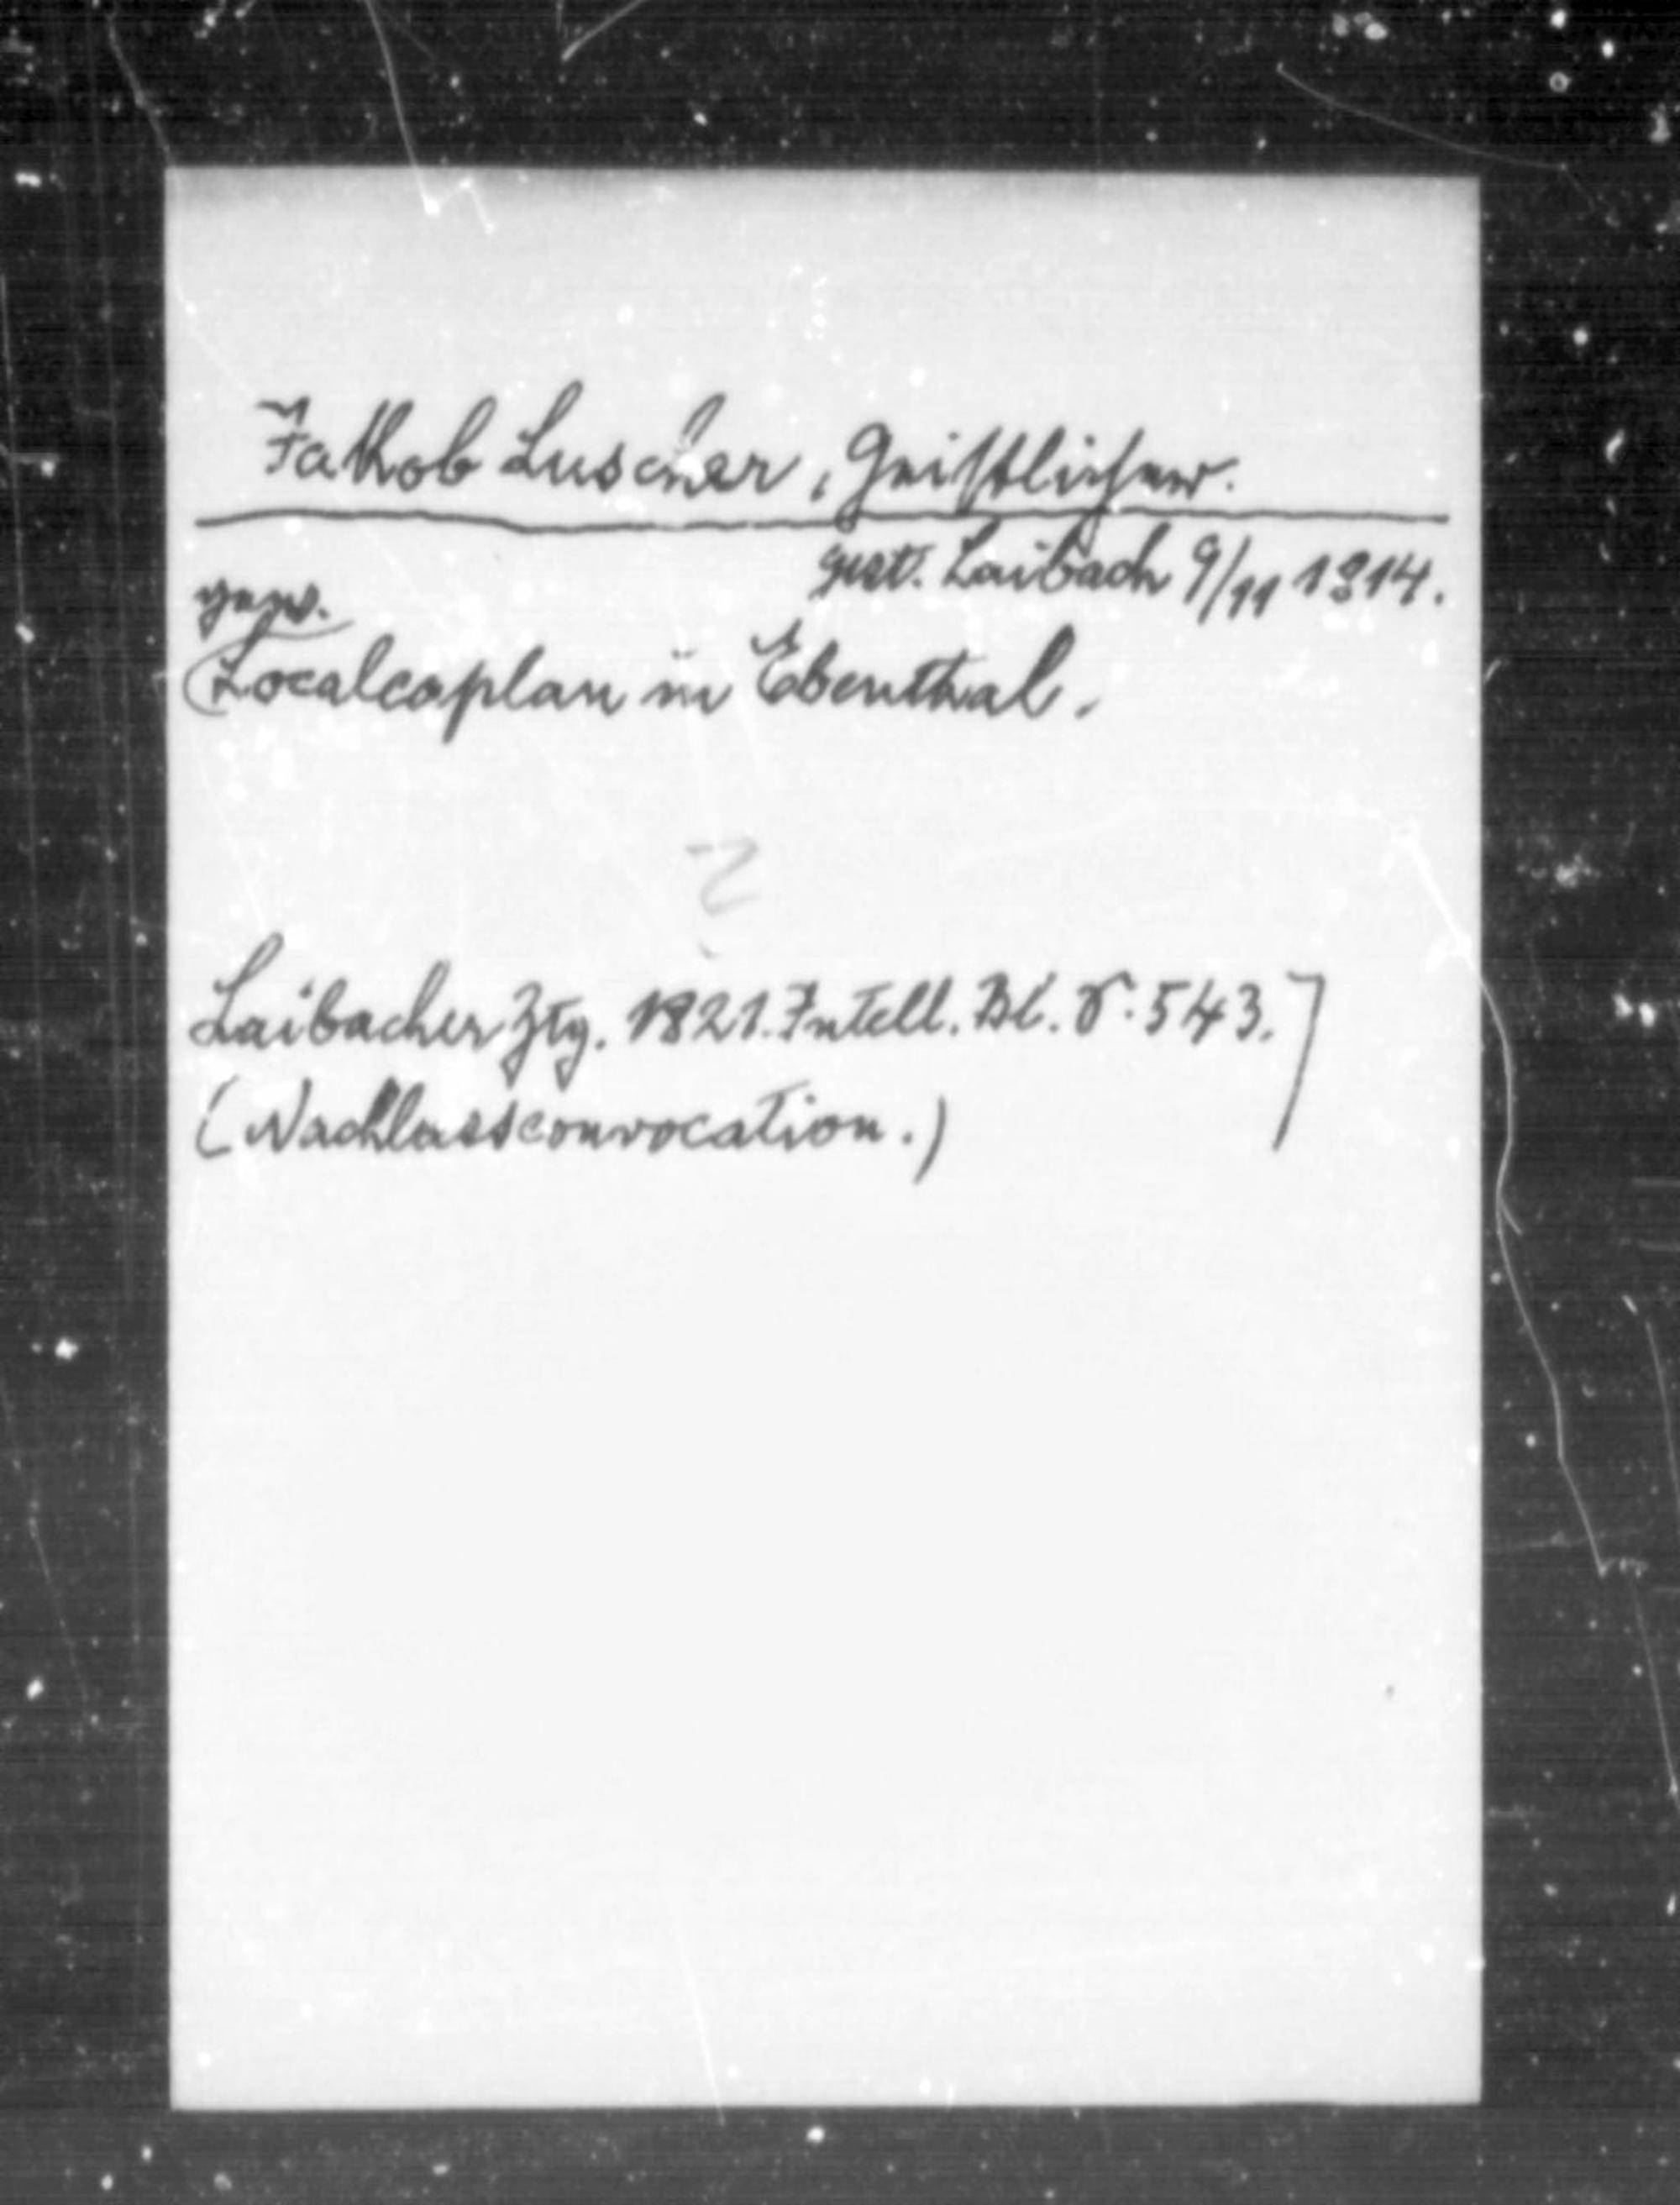 Jakob Luscher, Geistlicher.
gest. Laibach 9/11 1814.
gew.
Localcaplan in Ebenthal.
?
Laibacher Ztg. 1821. Intell. Bl. S. 543.
(Nachlassconvocation.)